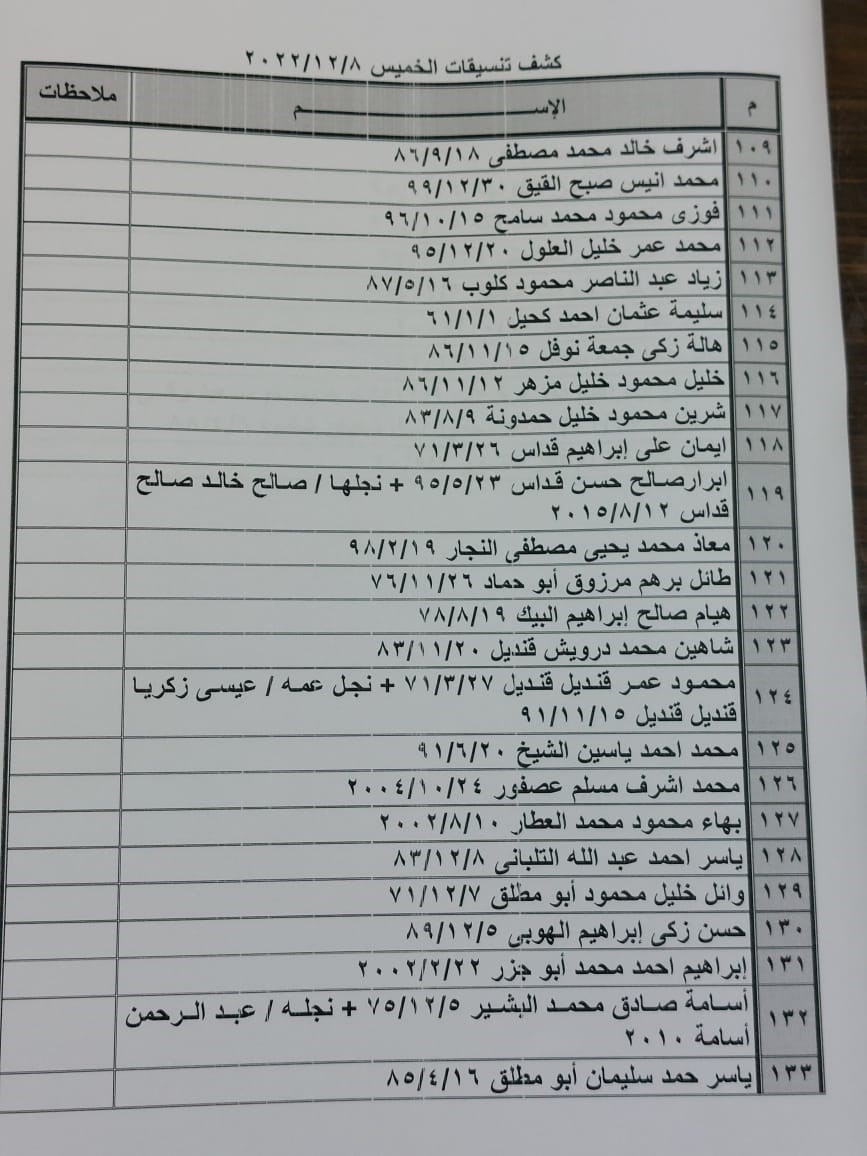 كشف تنسيقات الخميس ٢٠٢٢/١٢/٨
م الإســـــــــم ملاحظات
١٠٩ اشرف خالد محمد مصطفى ٨٦/٩/١٨
١١٠ محمد انيس صبح القيق ٩٩/١٢/٣٠
١١١ فوزى محمود محمد سامح ٩٦/١٠/١٥
١١٢ محمد عمر خليل العلول ٩٥/١٢/٢٠
١١٣ زياد عبد الناصر محمود كلوب ٨٧/٥/١٦
١١٤ سليمة عثمان احمد كحيل ٦١/١/١
١١٥ هالة زكى جمعة نوفل ٨٦/١١/١٥
١١٦ خليل محمود خليل مزهر ٨٦/١١/١٢
١١٧ شرين محمود خليل حمدونة ٨٣/٨/٩
١١٨ ايمان على إبراهيم قداس ٧١/٣/٢٦
١١٩ ابرارصالح حسن قداس ٩٥/٥/٢٣ + نجلها / صالح خالد صالح
قداس ٢٠١٥/٨/١٢
١٢٠ معاذ محمد يحيى مصطفى النجار ٩٨/٢/١٩
١٢١ طائل برهم مرزوق أبو حماد ٧٦/١١/٢٦
١٢٢ هيام صالح إبراهيم البيك ٧٨/٨/١٩
١٢٣ شاهين محمد درويش قنديل ٨٣/١١/٢٠
١٢٤ محمود عمر قنديل قنديل ٧١/٣/٢٧ + نجل عمه / عيسى زكريا
قنديل قنديل ٩١/١١/١٥
١٢٥ محمد احمد ياسين الشيخ ٩١/٦/٢٠
١٢٦ محمد اشرف مسلم عصفور ٢٠٠٤/١٠/٢٤
١٢٧ بهاء محمود محمد العطار ٢٠٠٢/٨/١٠
١٢٨ ياسر احمد عبد الله التلبانى ٨٣/١٢/٨
١٢٩ وائل خليل محمود أبو مطلق ٧١/١٢/٧
١٣٠ حسن زكى إبراهيم الهوبى ٨٩/١٢/٥
١٣١ إبراهيم احمد محمد أبو جزر ٢٠٠٢/٢/٢٢
١٣٢ أسامة صادق محمد البشير ٧٥/١٢/٥ + نجله / عبد الرحمن
أسامة ٢٠١٠
١٣٣ ياسر حمد سليمان أبو مطلق ٨٥/٤/١٦